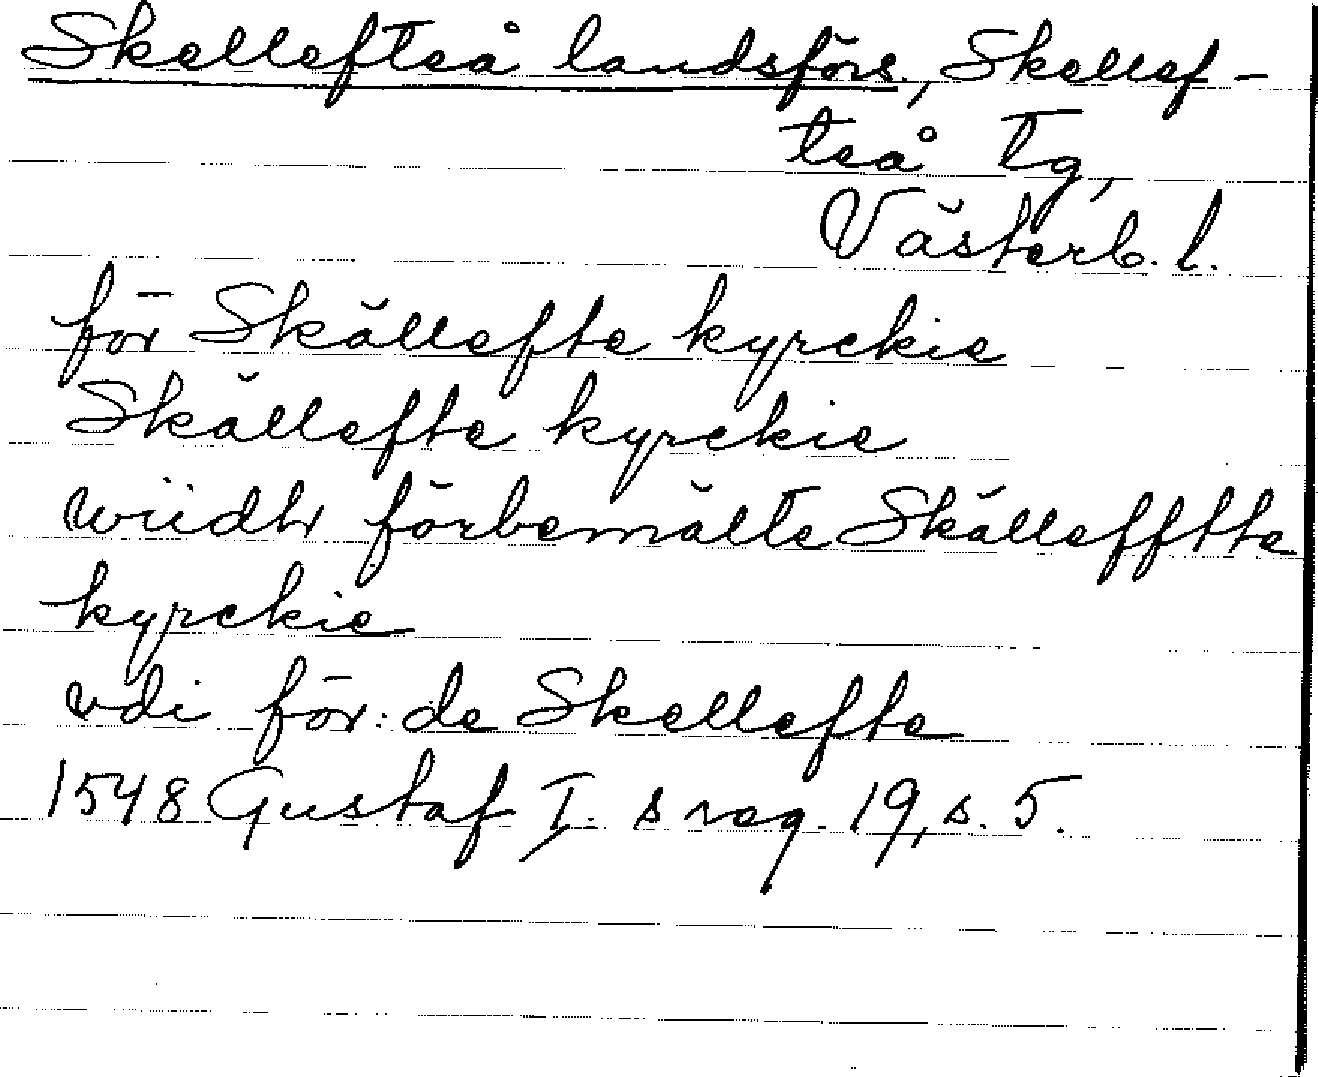 Skellefteå landsförs., Skellef-
teå tg,
Västerb. l.
för Skällefte kyrckie
Skällefte kyrckie
wiidh förbemälte Skällefftte
kyrckie
vdi för: de Skellefte
1548 Gustaf I. s reg. 19, s. 5.